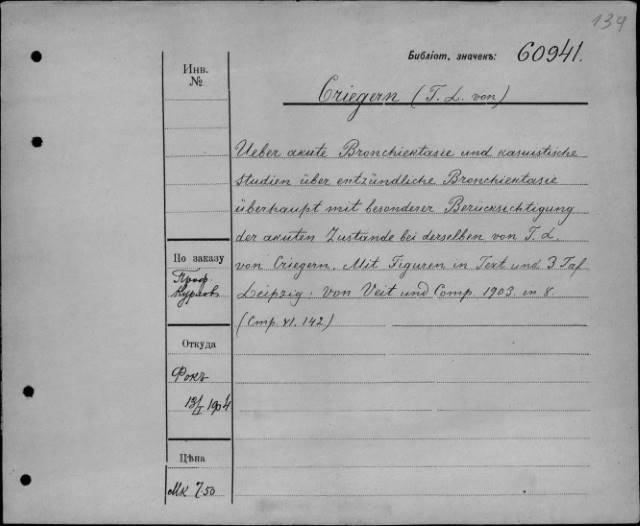 134
Библіот. значекъ: 60941.
Инв.
№
Criegern (T. L. von)
Ueber akute Bronchiektasie und kasuistische
Studien über entzündliche Bronchiektasie
überhaupt mit besonderer Berücksechtigung
der akuten Zustände bei derselben von T. L.
von Criegern. Mit Figuren in Text und 3 Taf
Leipzig: von Veit und Comp 1903. in 8.
(Стр. VI. 142)
По заказу
Проф
Курлов
Откуда
Фокъ
13/I 1904
Цѣна
Мк 7/50